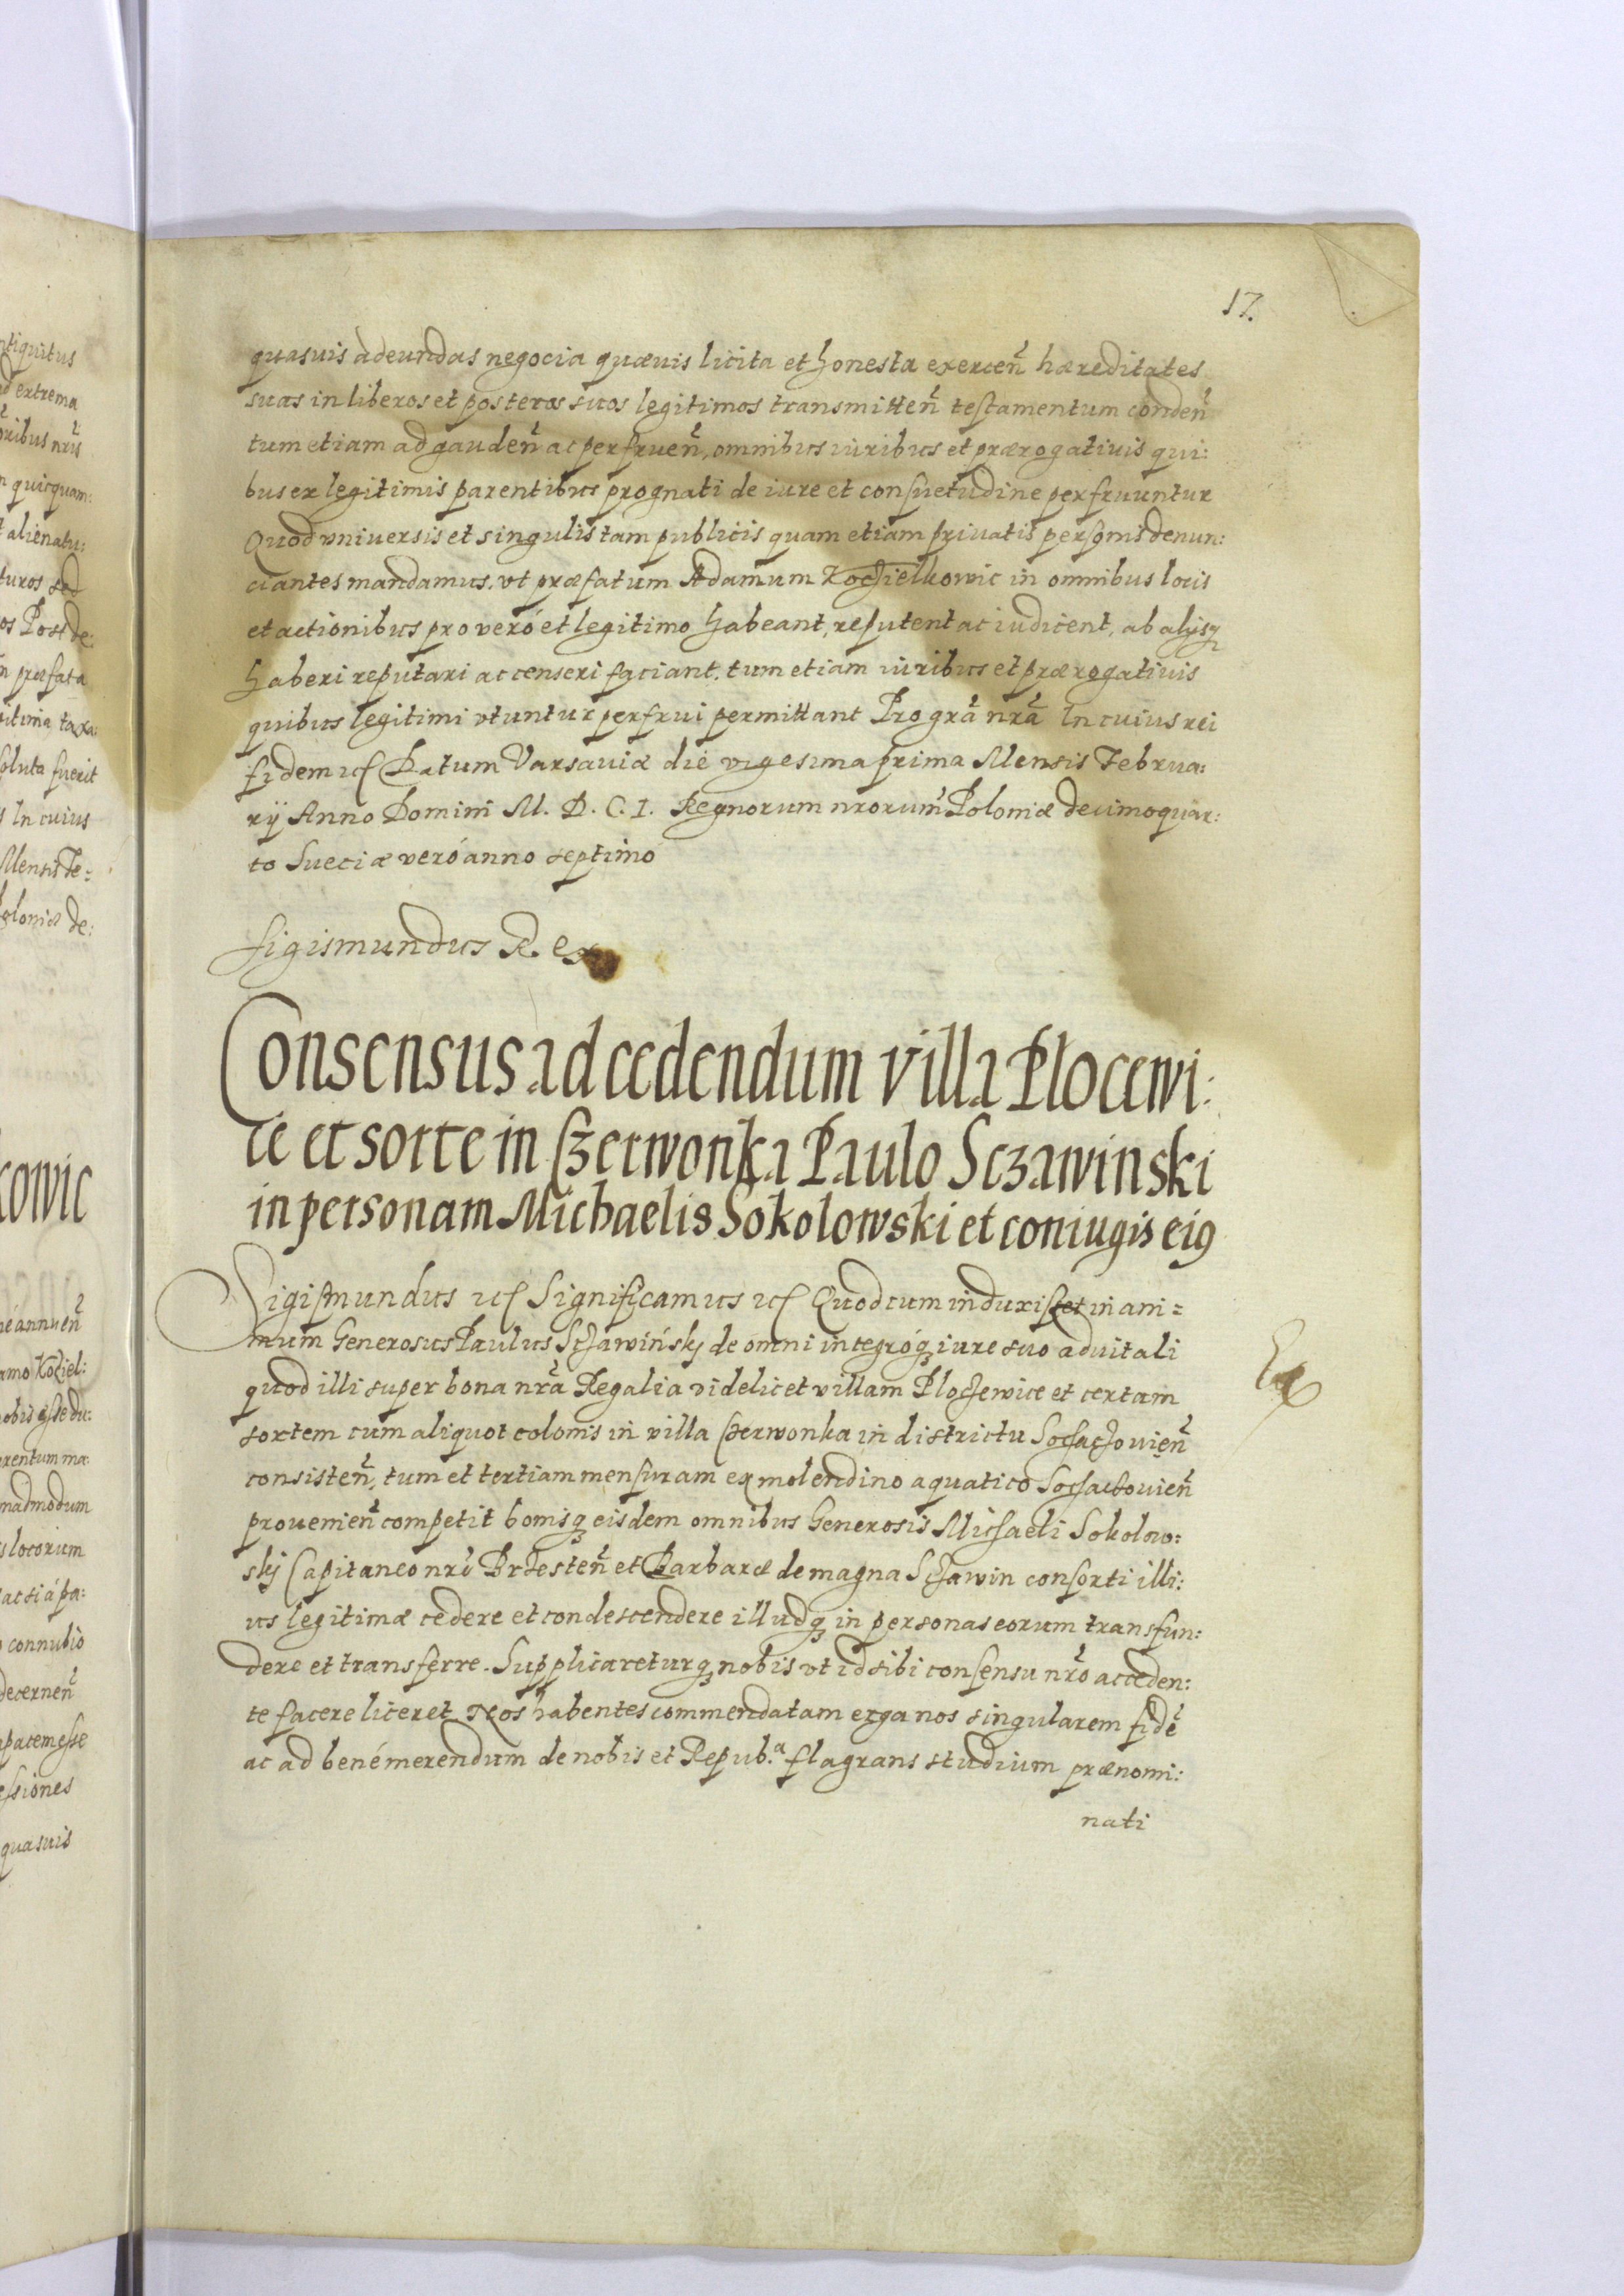 17.
quasuis adeundas negocia quæuis licita et honesta exercen̄ hæreditates
suas in liberos et posteros suos legitimos transmitten̄ testamentum conden̄
tum etiam ad gauden̄ ac perfruen̄, omnibus iuribus et prærogatiuis qui:
bus ex legitimis parentibus prognati de iure et consuetudine perfruuntur
Quod vniuersis et singulis tam publicis quam etiam priuatis personis denun:
ciantes mandamus. vt præfatum Adamum Kochielkowic in omnibus locis
et actionibus pro veró et legitimo habeant, reputent ac iudicent, ab alijsq3
haberi reputari ac censeri faciant. tum etiam iuribus et prærogatiuis
quibus legitimi vtuntur perfrui permittant Pro grã nrã In cuius rei
fidem etc Datum Varsauiæ die vigesima prima Mensis Februa:
rij Anno Domini M. D. C. I. Regnorum nrorum Poloniæ decimoquar:
to Sueciæ veró anno septimó
Sigismundus Rex
Consensus ad cedendum villa Plocewi:
ce et sorte in Czerwonka Paulo Sczawinski
in personam Michaelis Sokolowski et coniugis ei9
Sigismundus etc Significamus etc Quod cum induxisset in ani=
mum Generosus Paulus Sczawińskj de omni integróq3 iure suo aduitali
quod illi super bona nrã Regalia videlicet villam Plochewice et certam
sortem cum aliquot colonis in villa Czerwonka in districtu Sochachouien̄
consisten̄, tum et tertiam mensuram ex molendino aquatico Sochachouien̄
prouenien̄ competit bonisq3 eisdem omnibus Generosis Michaeli Sokolow:
skj Capitaneo nrõ Brzesten̄ et Barbaræ de magna Sczawin consorti illi:
us legitimæ cedere et condescendere illudq3 in personas eorum transfun:
dere et transferre. Supplicareturq3 nobis vt id sibi consensu nrõ acceden:
te facere liceret Nos habentes commendatam erga nos singularem fidẽ
ac ad bené merendum de nobis et Repub.a flagrans studium prænomi:
nati